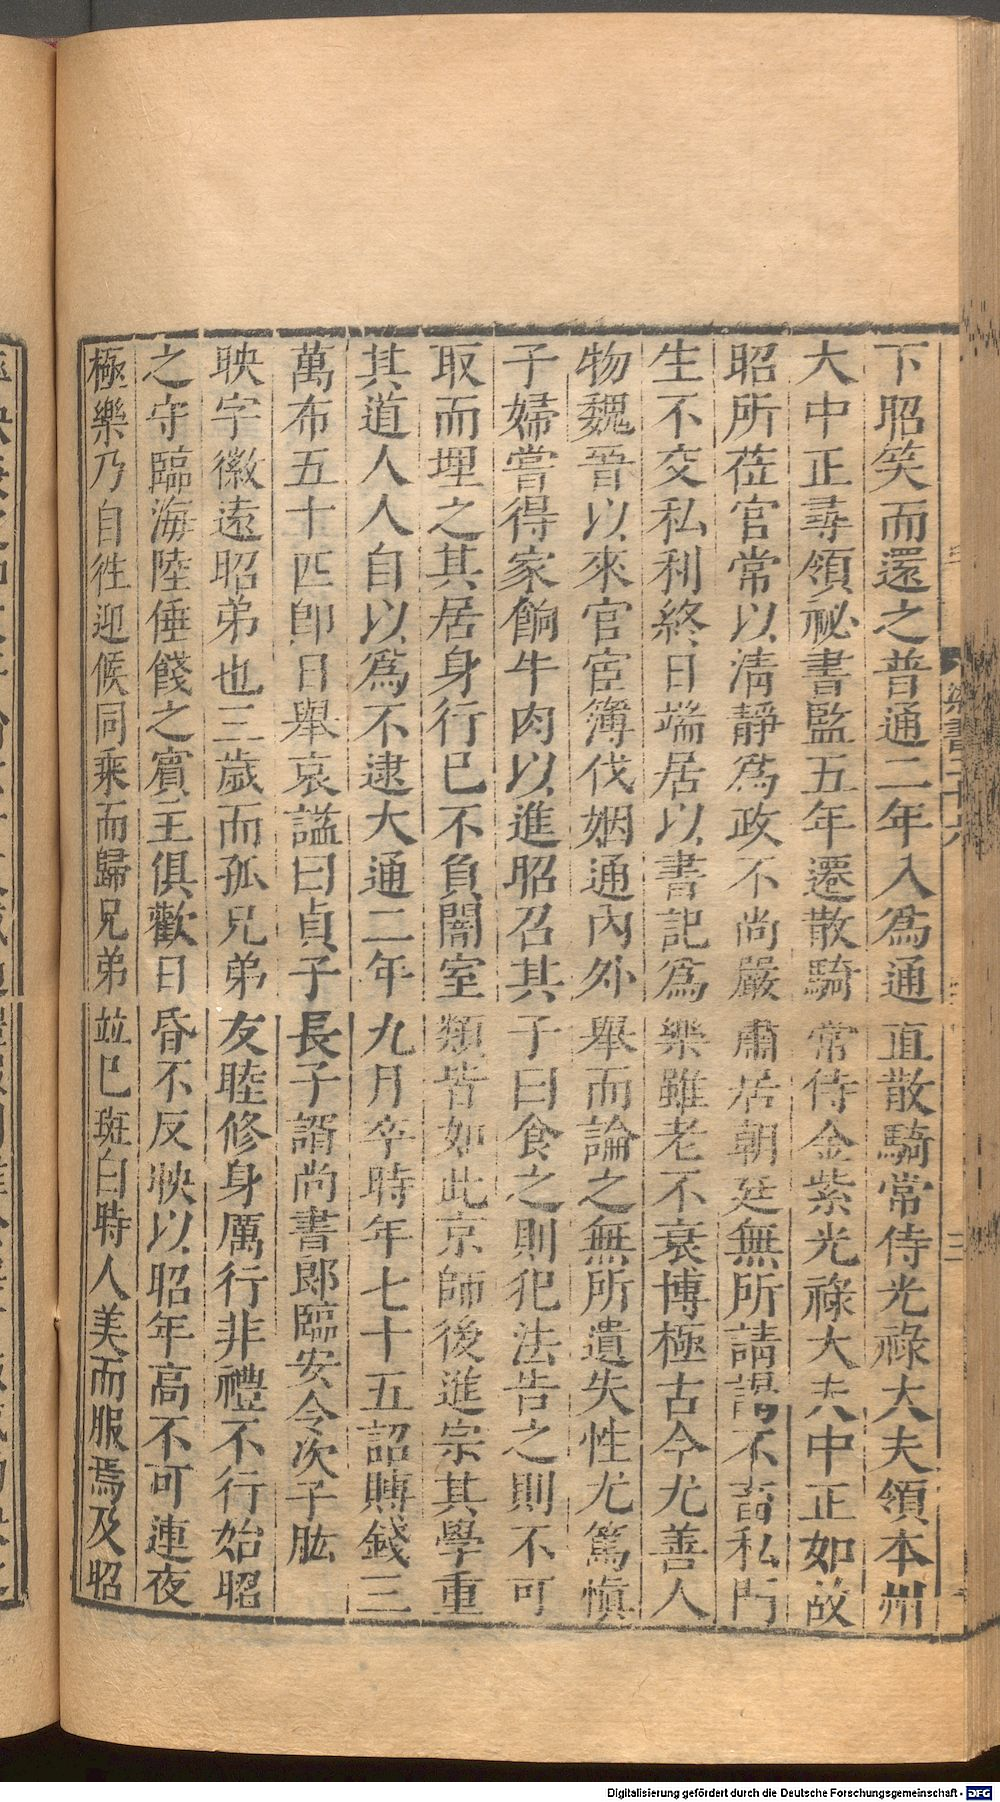 下昭笑而還之普通二年入爲通直散騎常侍光祿大夫領本州
大中正尋領祕書監五年遷散騎常侍金紫光祿大夫中正如故
昭所莅官常以淸靜爲政不尚嚴肅居朝廷無所請謁不畜私門
生不交私利終日端居以書記爲樂雖老不衰博極古今尤善人
物魏晉以來官宦簿伐姻通內外舉而論之無所遺失性尤篤愼
子婦嘗得家餉牛肉以進昭召其子曰食之則犯法告之則不可
取而埋之其居身行已不負闇室類皆如此京師後進宗其學重
其道人人自以爲不逮大通二年九月卒時年七十五詔賻錢三
萬布五十匹卽日舉哀諡曰貞子長子諝尚書郎臨安令次子肱
映字徽遠昭弟也三歲而孤兄弟友睦修身厲行非禮不行始昭
之守臨海陸倕餞之賓主俱歡日昏不反映以昭年高不可連夜
極樂乃自往迎候同乘而歸兄弟竝已斑白時人美而服焉及昭
梁書二十六
三
Digitalisierung gefördert durch die Deutsche Forschungsgemeinschaft - DFG